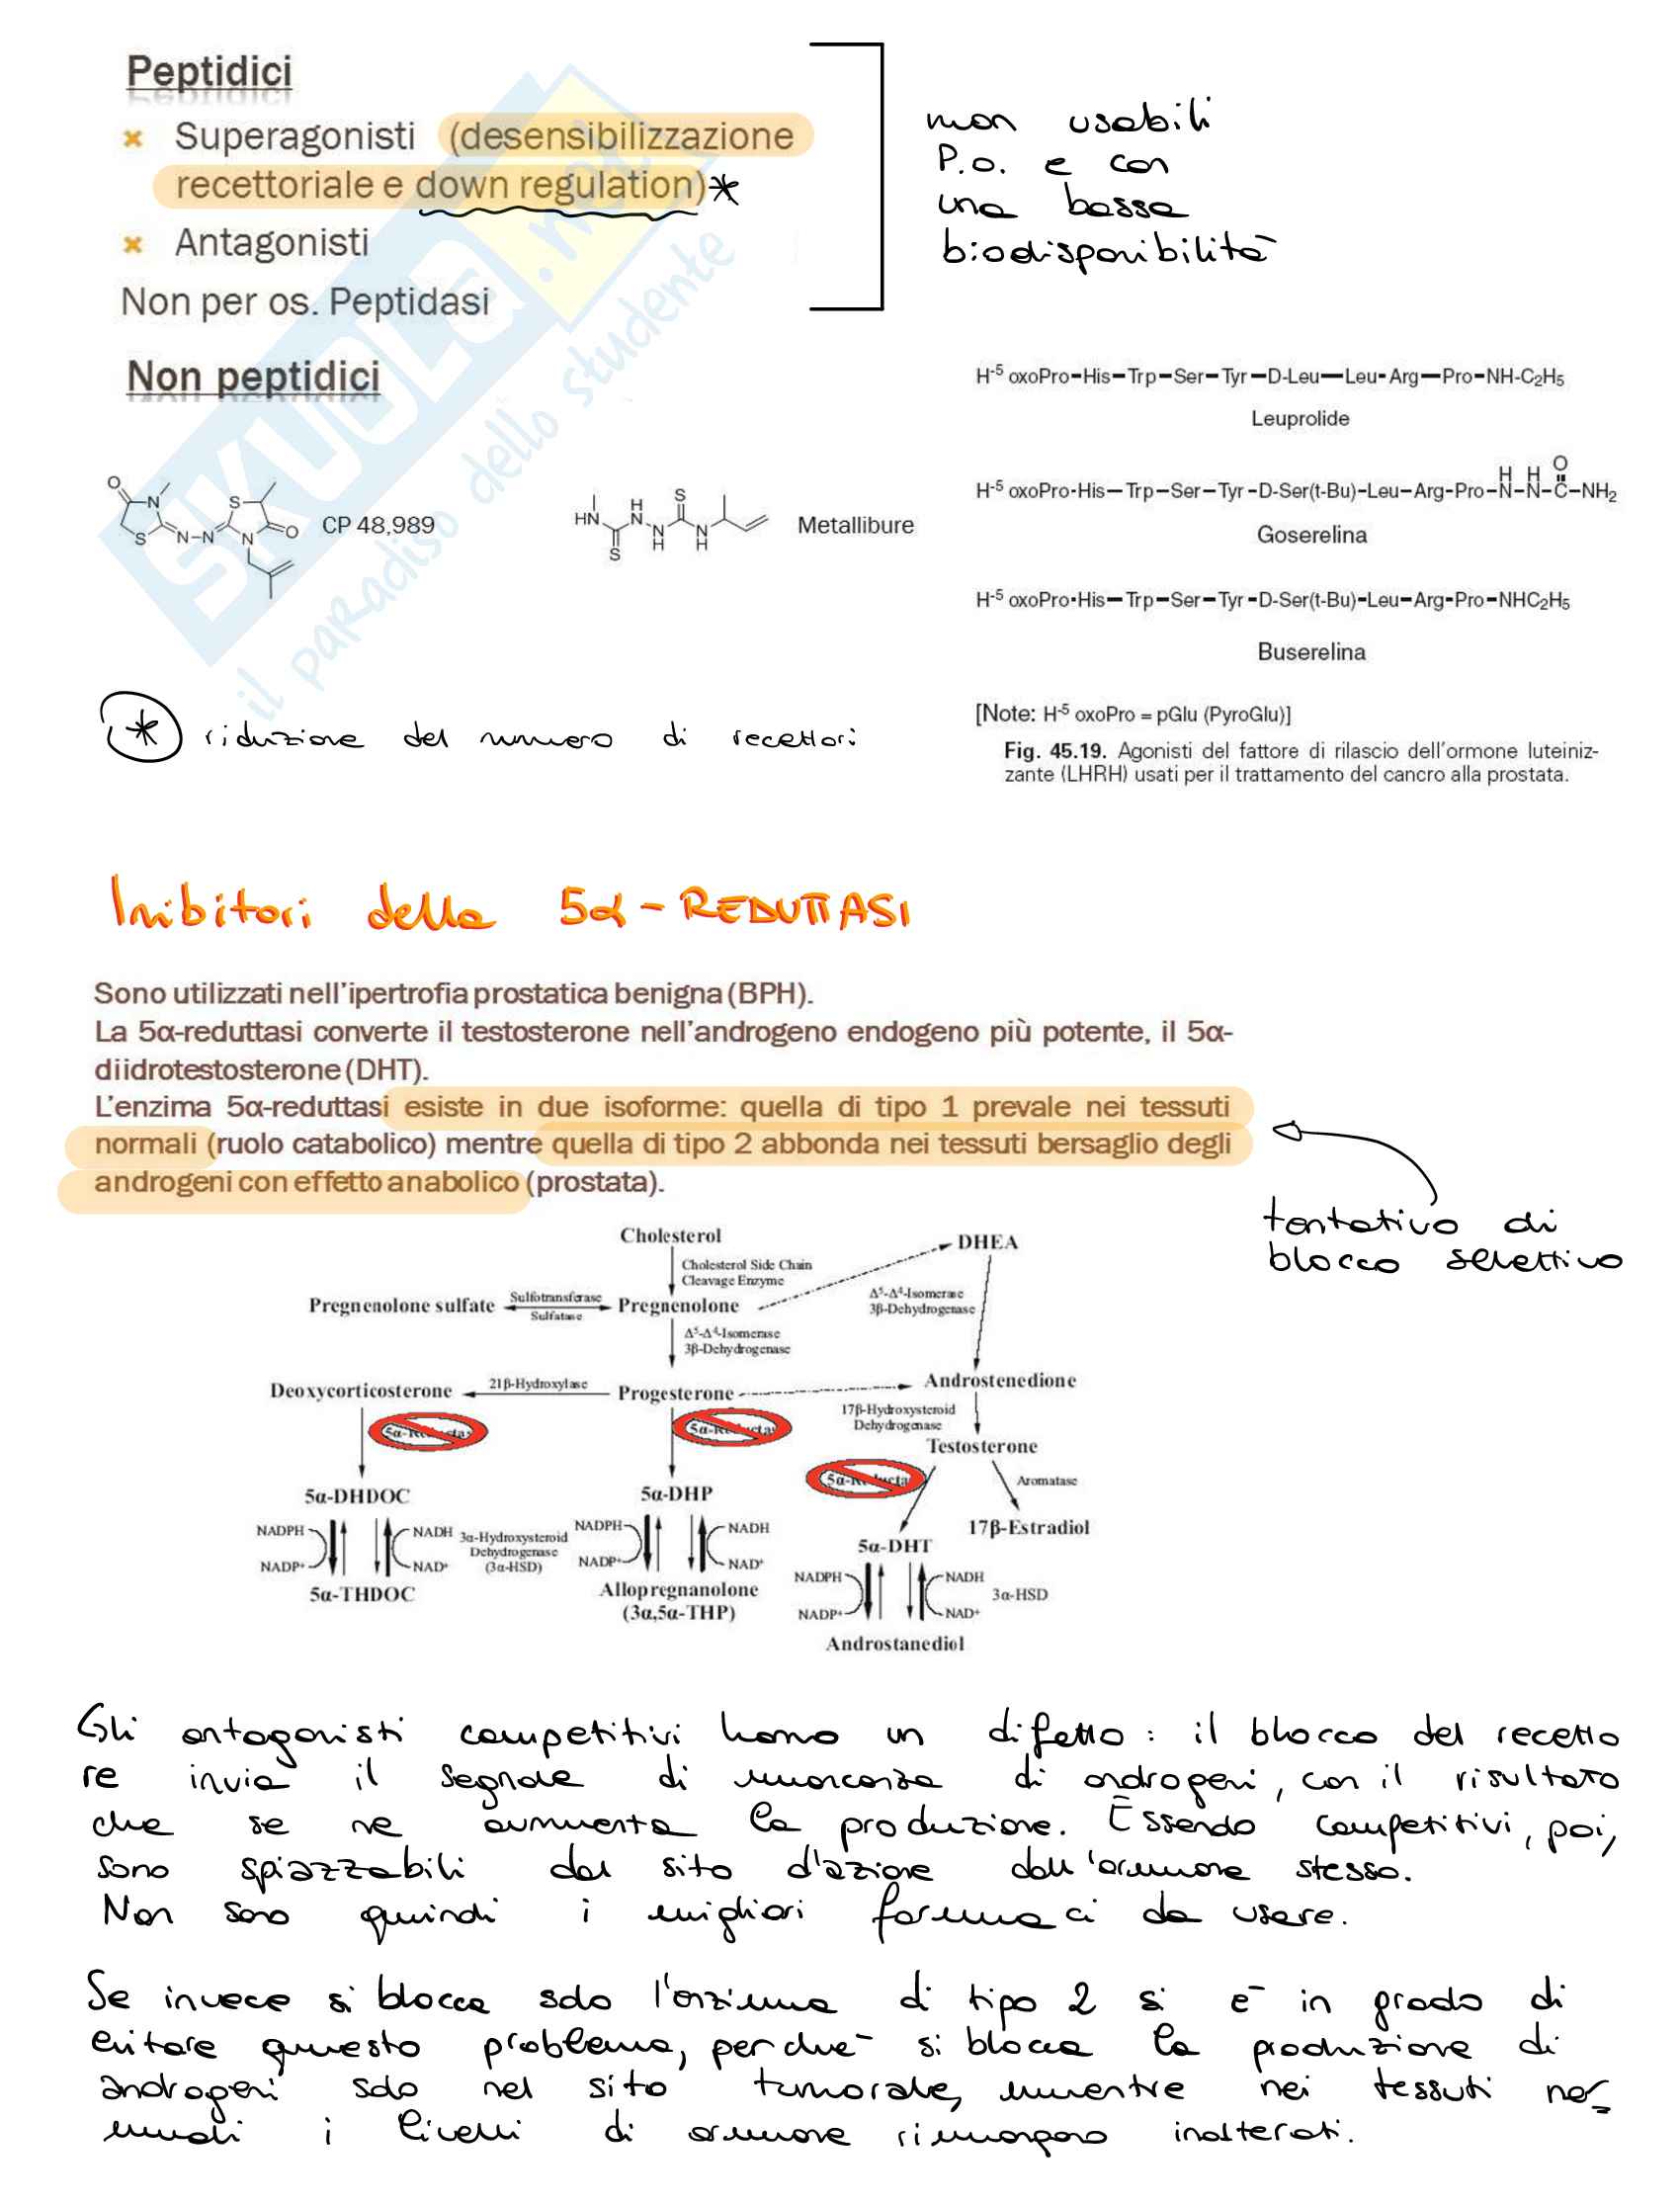 Peptidici
× Superagonisti (desensibilizzazione
recettoriale e down regulation)*
× Antagonisti
Non per os. Peptidasi
non usabili
P.o. e con
una bassa
biodisponibilità
Non peptidici
CP 48,989
Metallibure
H-5 oxoPro-His-Trp-Ser-Tyr-D-Leu-Leu-Arg-Pro-NH-C2H5
Leuprolide
H-5 oxoPro-His-Trp-Ser-Tyr-D-Ser(t-Bu)-Leu-Arg-Pro-N-N-C-NH2
H H O
Goserelina
H-5 oxoPro-His-Trp-Ser-Tyr-D-Ser(t-Bu)-Leu-Arg-Pro-NHC2H5
Buserelina
[Note: H-5 oxoPro = pGlu (PyroGlu)]
Fig. 45.19. Agonisti del fattore di rilascio dell'ormone luteiniz-
zante (LHRH) usati per il trattamento del cancro alla prostata.
* riduzione del numero di recettori
SKUOLa.net
il paradiso dello studente
Inibitori della 5α-REDUTTASI
Sono utilizzati nell'ipertrofia prostatica benigna (BPH).
La 5α-reduttasi converte il testosterone nell'androgeno endogeno più potente, il 5α-
diidrotestosterone (DHT).
L'enzima 5α-reduttasi esiste in due isoforme: quella di tipo 1 prevale nei tessuti
normali (ruolo catabolico) mentre quella di tipo 2 abbonda nei tessuti bersaglio degli
androgeni con effetto anabolico (prostata).
tentativo di
blocco selettivo
Cholesterol
DHEA
Cholesterol Side Chain
Cleavage Enzyme
Pregnenolone sulfate
Sulfotransferase
Sulfatase
Pregnenolone
Δ5-Δ4-Isomerase
3β-Dehydrogenase
Δ5-Δ4-Isomerase
3β-Dehydrogenase
Deoxycorticosterone
21β-Hydroxylase
Progesterone
Androstenedione
17β-Hydroxysteroid
Dehydrogenase
Testosterone
Aromatase
5α-DHDOC
5α-DHP
17β-Estradiol
5α-DHT
NADPH
NADP+
NADH
NAD+
3α-Hydroxysteroid
Dehydrogenase
(3α-HSD)
NADPH
NADP+
NADH
NAD+
5α-THDOC
Allopregnanolone
(3α,5α-THP)
NADPH
NADP+
NADH
NAD+
3α-HSD
Androstanediol
Gli antagonisti competitivi hanno un difetto: il blocco del recetto
re invia il segnale di mancanza di androgeni, con il risultato
che se ne aumenta la produzione. Essendo competitivi, poi,
sono spiazzabili dal sito d'azione dall'ormone stesso.
Non sono quindi i migliori farmaci da usare.
Se invece si blocca solo l'enzima di tipo 2 si è in grado di
evitare questo problema, perché si blocca la produzione di
androgeni solo nel sito tumorale, mentre nei tessuti nor-
mali i livelli di ormone rimangono inalterati.